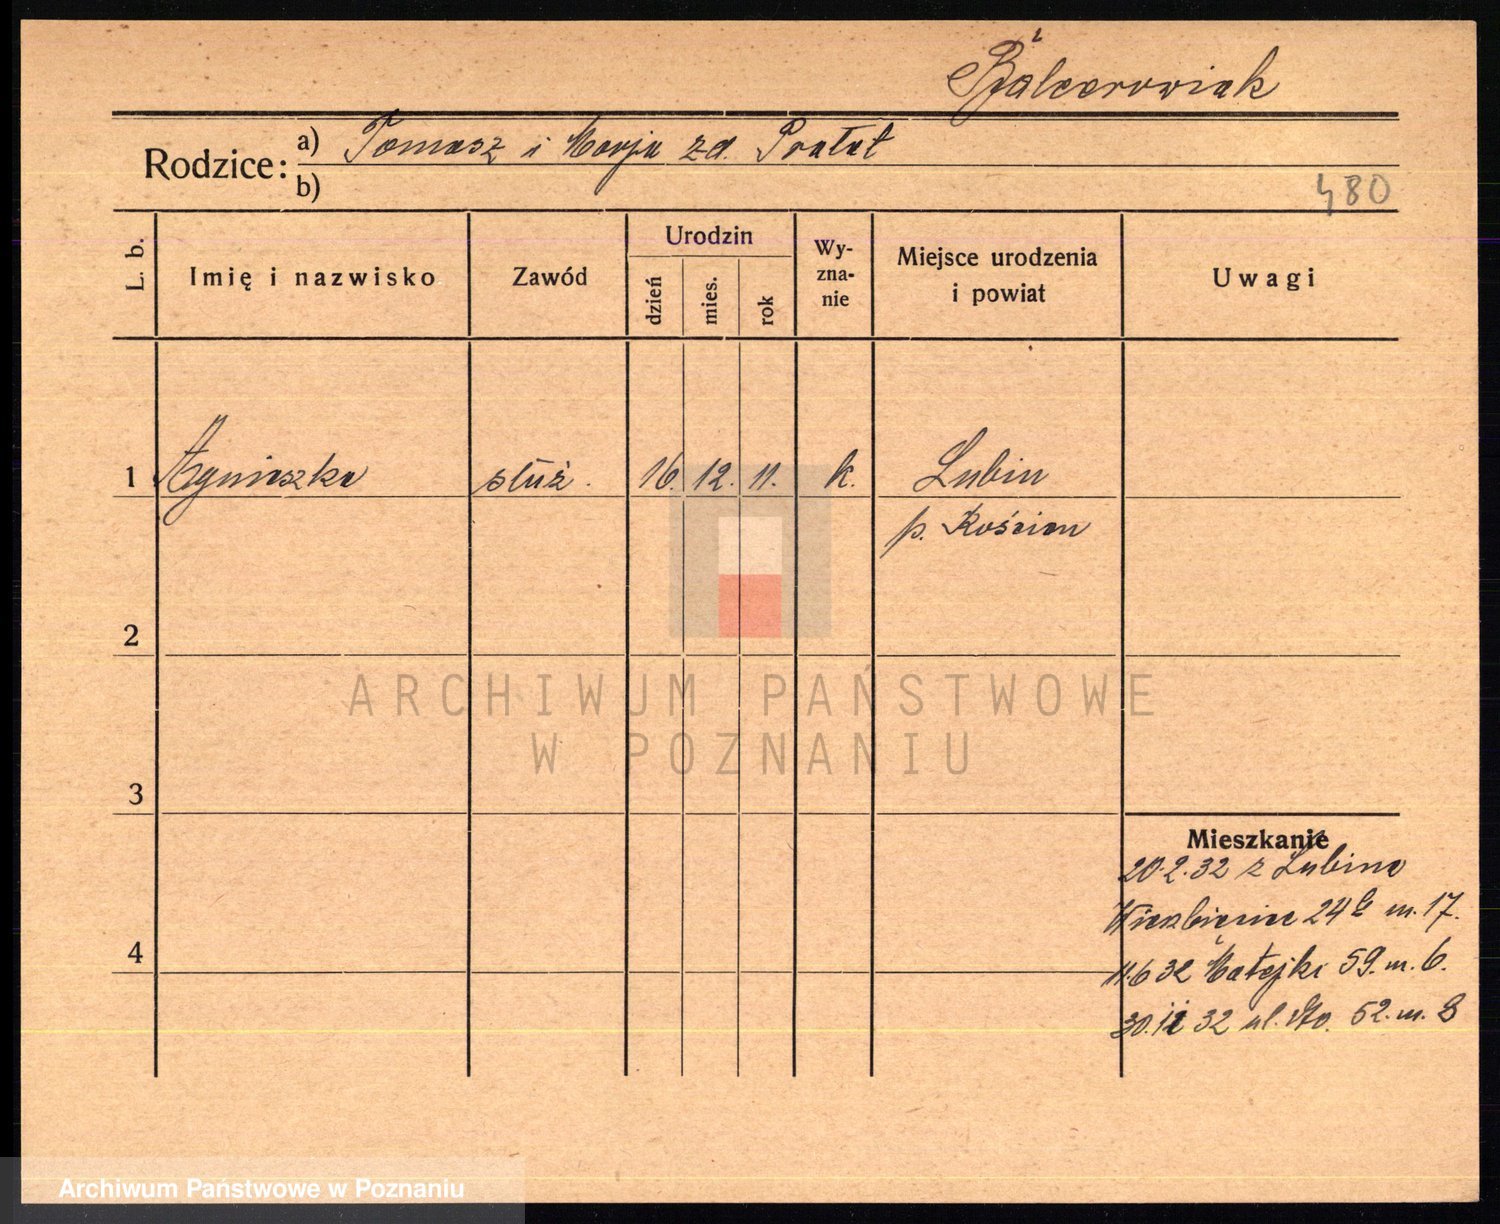 Balcerowiak
Rodzice: a) Tomasz i Marja zd. Prałat
b)
480
L. b.
Imię i nazwisko
Zawód
Urodzin
dzień
mies.
rok
Wy-
zna-
nie
Miejsce urodzenia
i powiat
Uwagi
1 Agnieszka służ. 16. 12. 11. k. Lubin
p. Kościan
2
3
4
ARCHIWUM PAŃSTWOWE
W POZNANIU
Mieszkanie
20.2.32 z Lubina
Wierzbięcice 24b m. 17.
11.6 32 Matejki 59. m. 6.
32 ul. 52. m. 8
Archiwum Państwowe w Poznaniu